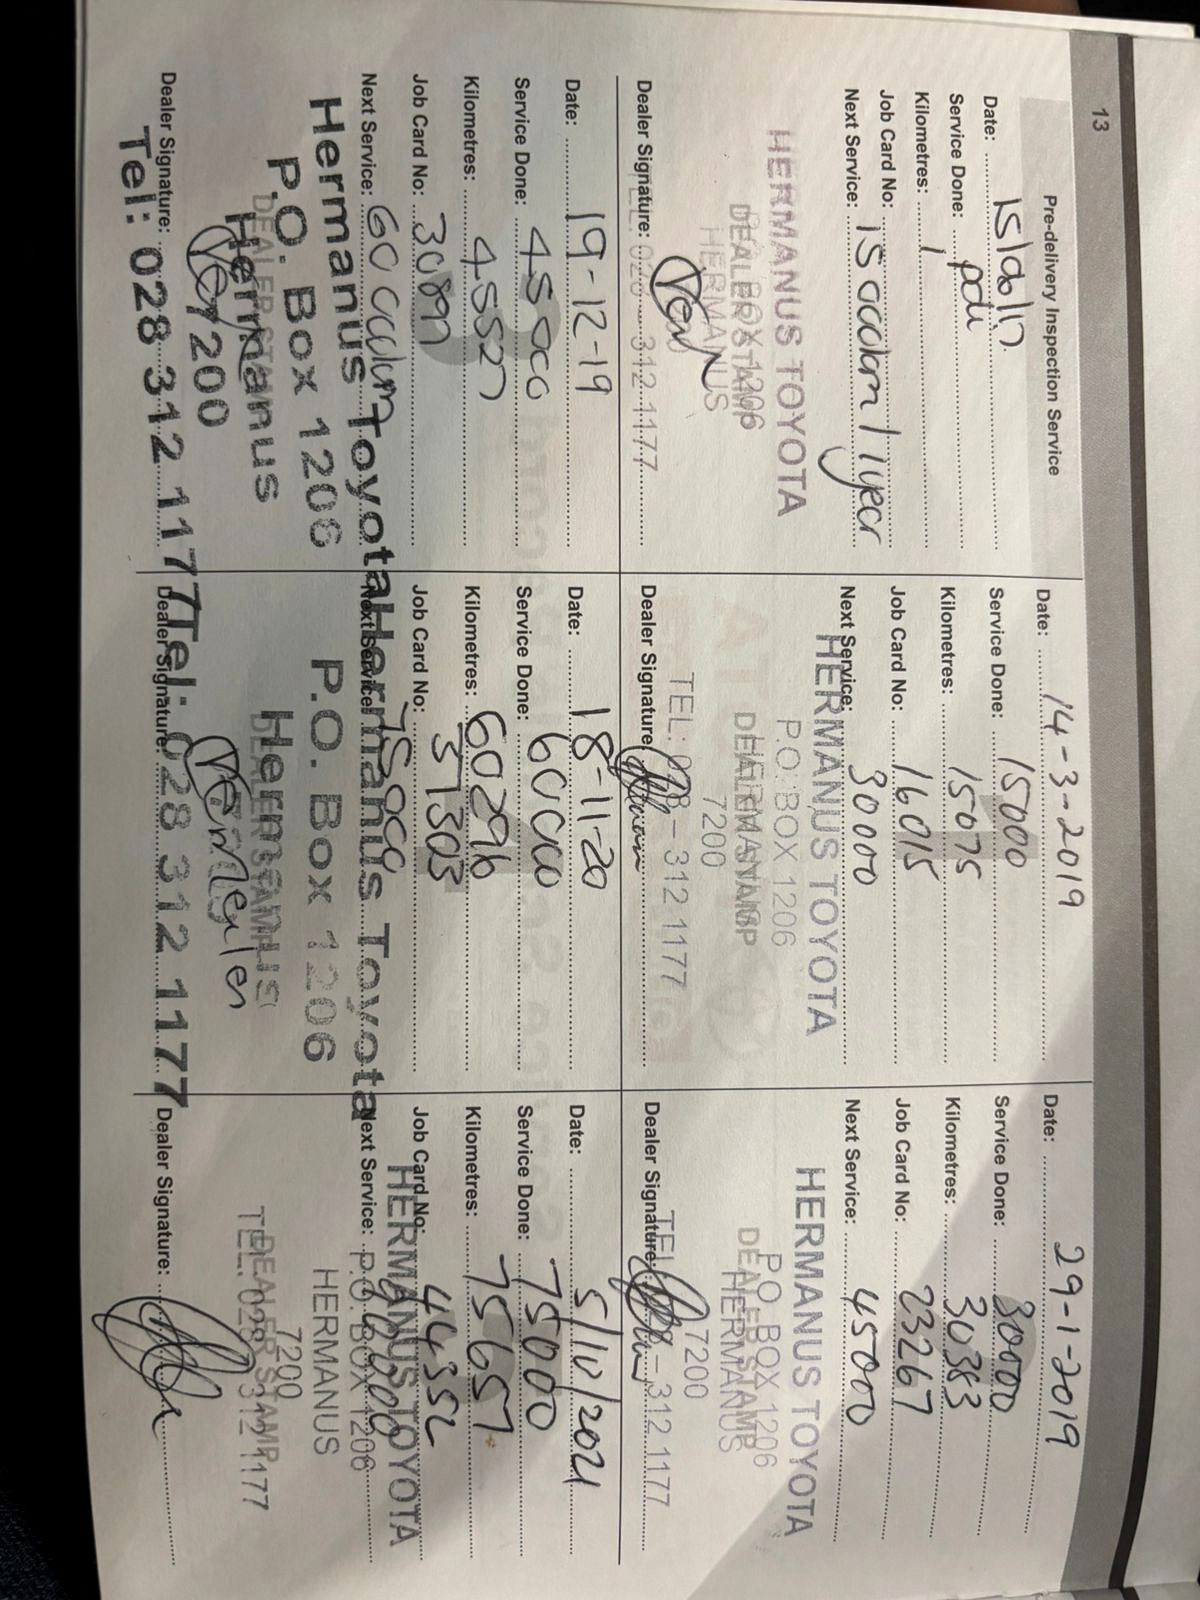 13
Pre-delivery Inspection Service
Date:
Service Done: pdi
Kilometres: 1
Job Card No:
Next Service: 15000km / 1 year
HERMANUS TOYOTA
P.O. BOX 1206
DEALER STAMP
HERMANUS
Dealer Signature: TEL: 028 - 312 1177
Date: 14-3-2019
Service Done: 15000
Kilometres: 15075
Job Card No: 16015
Next Service: 30000
HERMANUS TOYOTA
P.O. BOX 1206
HERMANUS
DEALER STAMP
7200
TEL: 028 - 312 1177
Dealer Signature:
Date: 29-1-2019
Service Done: 30000
Kilometres: 30383
Job Card No: 23267
Next Service: 45000
HERMANUS TOYOTA
P.O. BOX 1206
DEALER STAMP
HERMANUS
7200
TEL: 028 - 312 1177
Dealer Signature:
Date: 19-12-19
Service Done: 45000
Kilometres: 45527
Job Card No: 30897
Next Service: 60000km
Hermanus Toyota
P.O. Box 1206
DEALER STAMP
Hermanus
7200
Dealer Signature:
Tel: 028 312 1177
Date: 18-11-20
Service Done: 60000
Kilometres: 60296
Job Card No: 37303
Next Service: 75000
Hermanus Toyota
P.O. Box 1206
DEALER STAMP
Hermanus
Dealer Signature:
Tel: 028 312 1177
Date: 5/10/2021
Service Done: 75000
Kilometres: 75657
Job Card No: 44352
HERMANUS TOYOTA
Next Service: 90000
P.O. BOX 1206
HERMANUS
7200
DEALER STAMP
TEL: 028 - 312 1177
Dealer Signature: